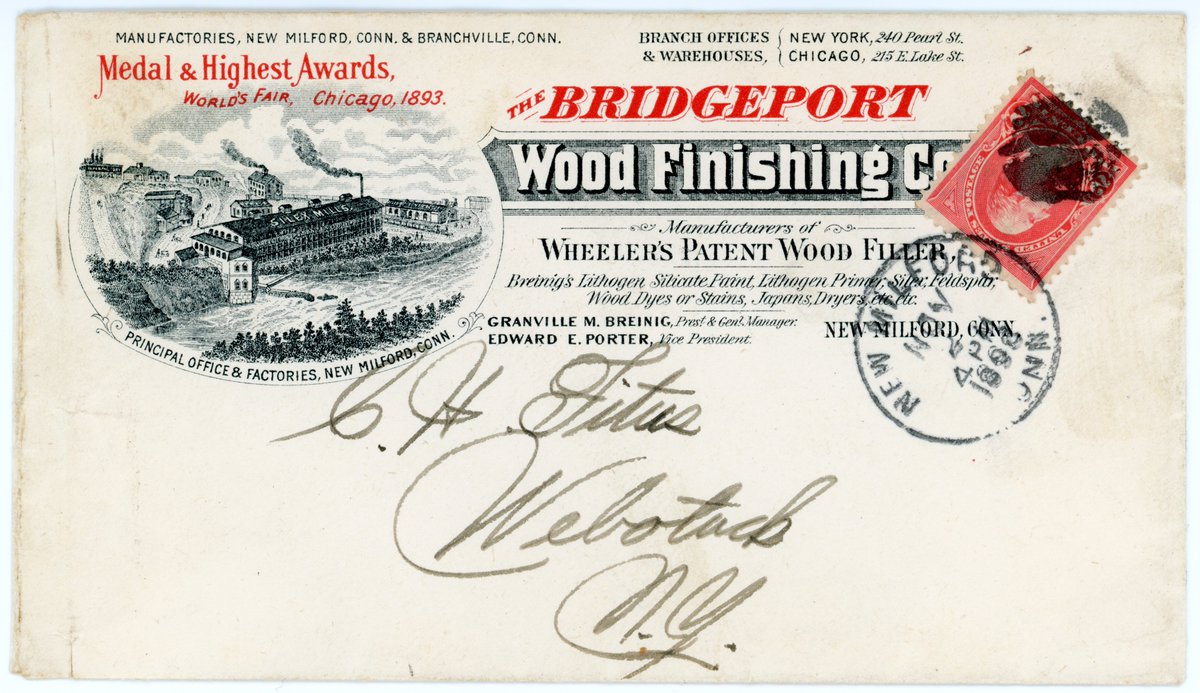 MANUFACTORIES, NEW MILFORD, CONN. & BRANCHVILLE, CONN.
BRANCH OFFICES & WAREHOUSES, { NEW YORK, 240 Pearl St.
CHICAGO, 215 E. Lake St.
Medal & Highest Awards,
WORLD'S FAIR, Chicago, 1893.
THE BRIDGEPORT
Wood Finishing Co
SILEX MILLS
Manufacturers of
WHEELER'S PATENT WOOD FILLER,
Breinig's Lithogen Silicate Paint, Lithogen Primer, Silex, Feldspar,
Wood Dyes or Stains, Japans, Dryers, etc. etc.
GRANVILLE M. BREINIG, Prest. & Genl. Manager.
EDWARD E. PORTER, Vice President.
NEW MILFORD, CONN.
PRINCIPAL OFFICE & FACTORIES, NEW MILFORD, CONN.
UNITED STATES POSTAGE
NEW MILFORD CONN.
NOV
4 PM
189
C. H. Titus
Webotuck
N.Y.